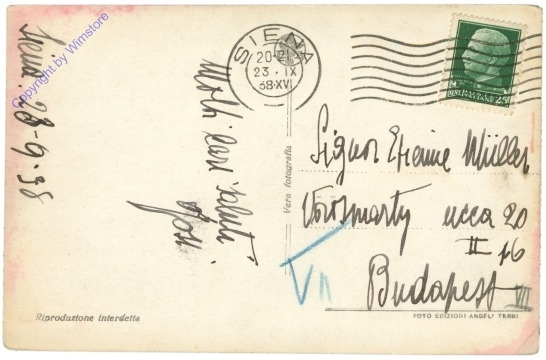 Siena 23-9-38
Copyright by Wimstore
Molti cari saluti
SIENA
20-21
23·IX
38·XVI
Vera fotografia
Signor Etienne Müller
Vörösmarty ucca 20
II 16
Budapest VII
VII
Riproduzione interdetta
FOTO EDIZIONI ANGELI TERNI